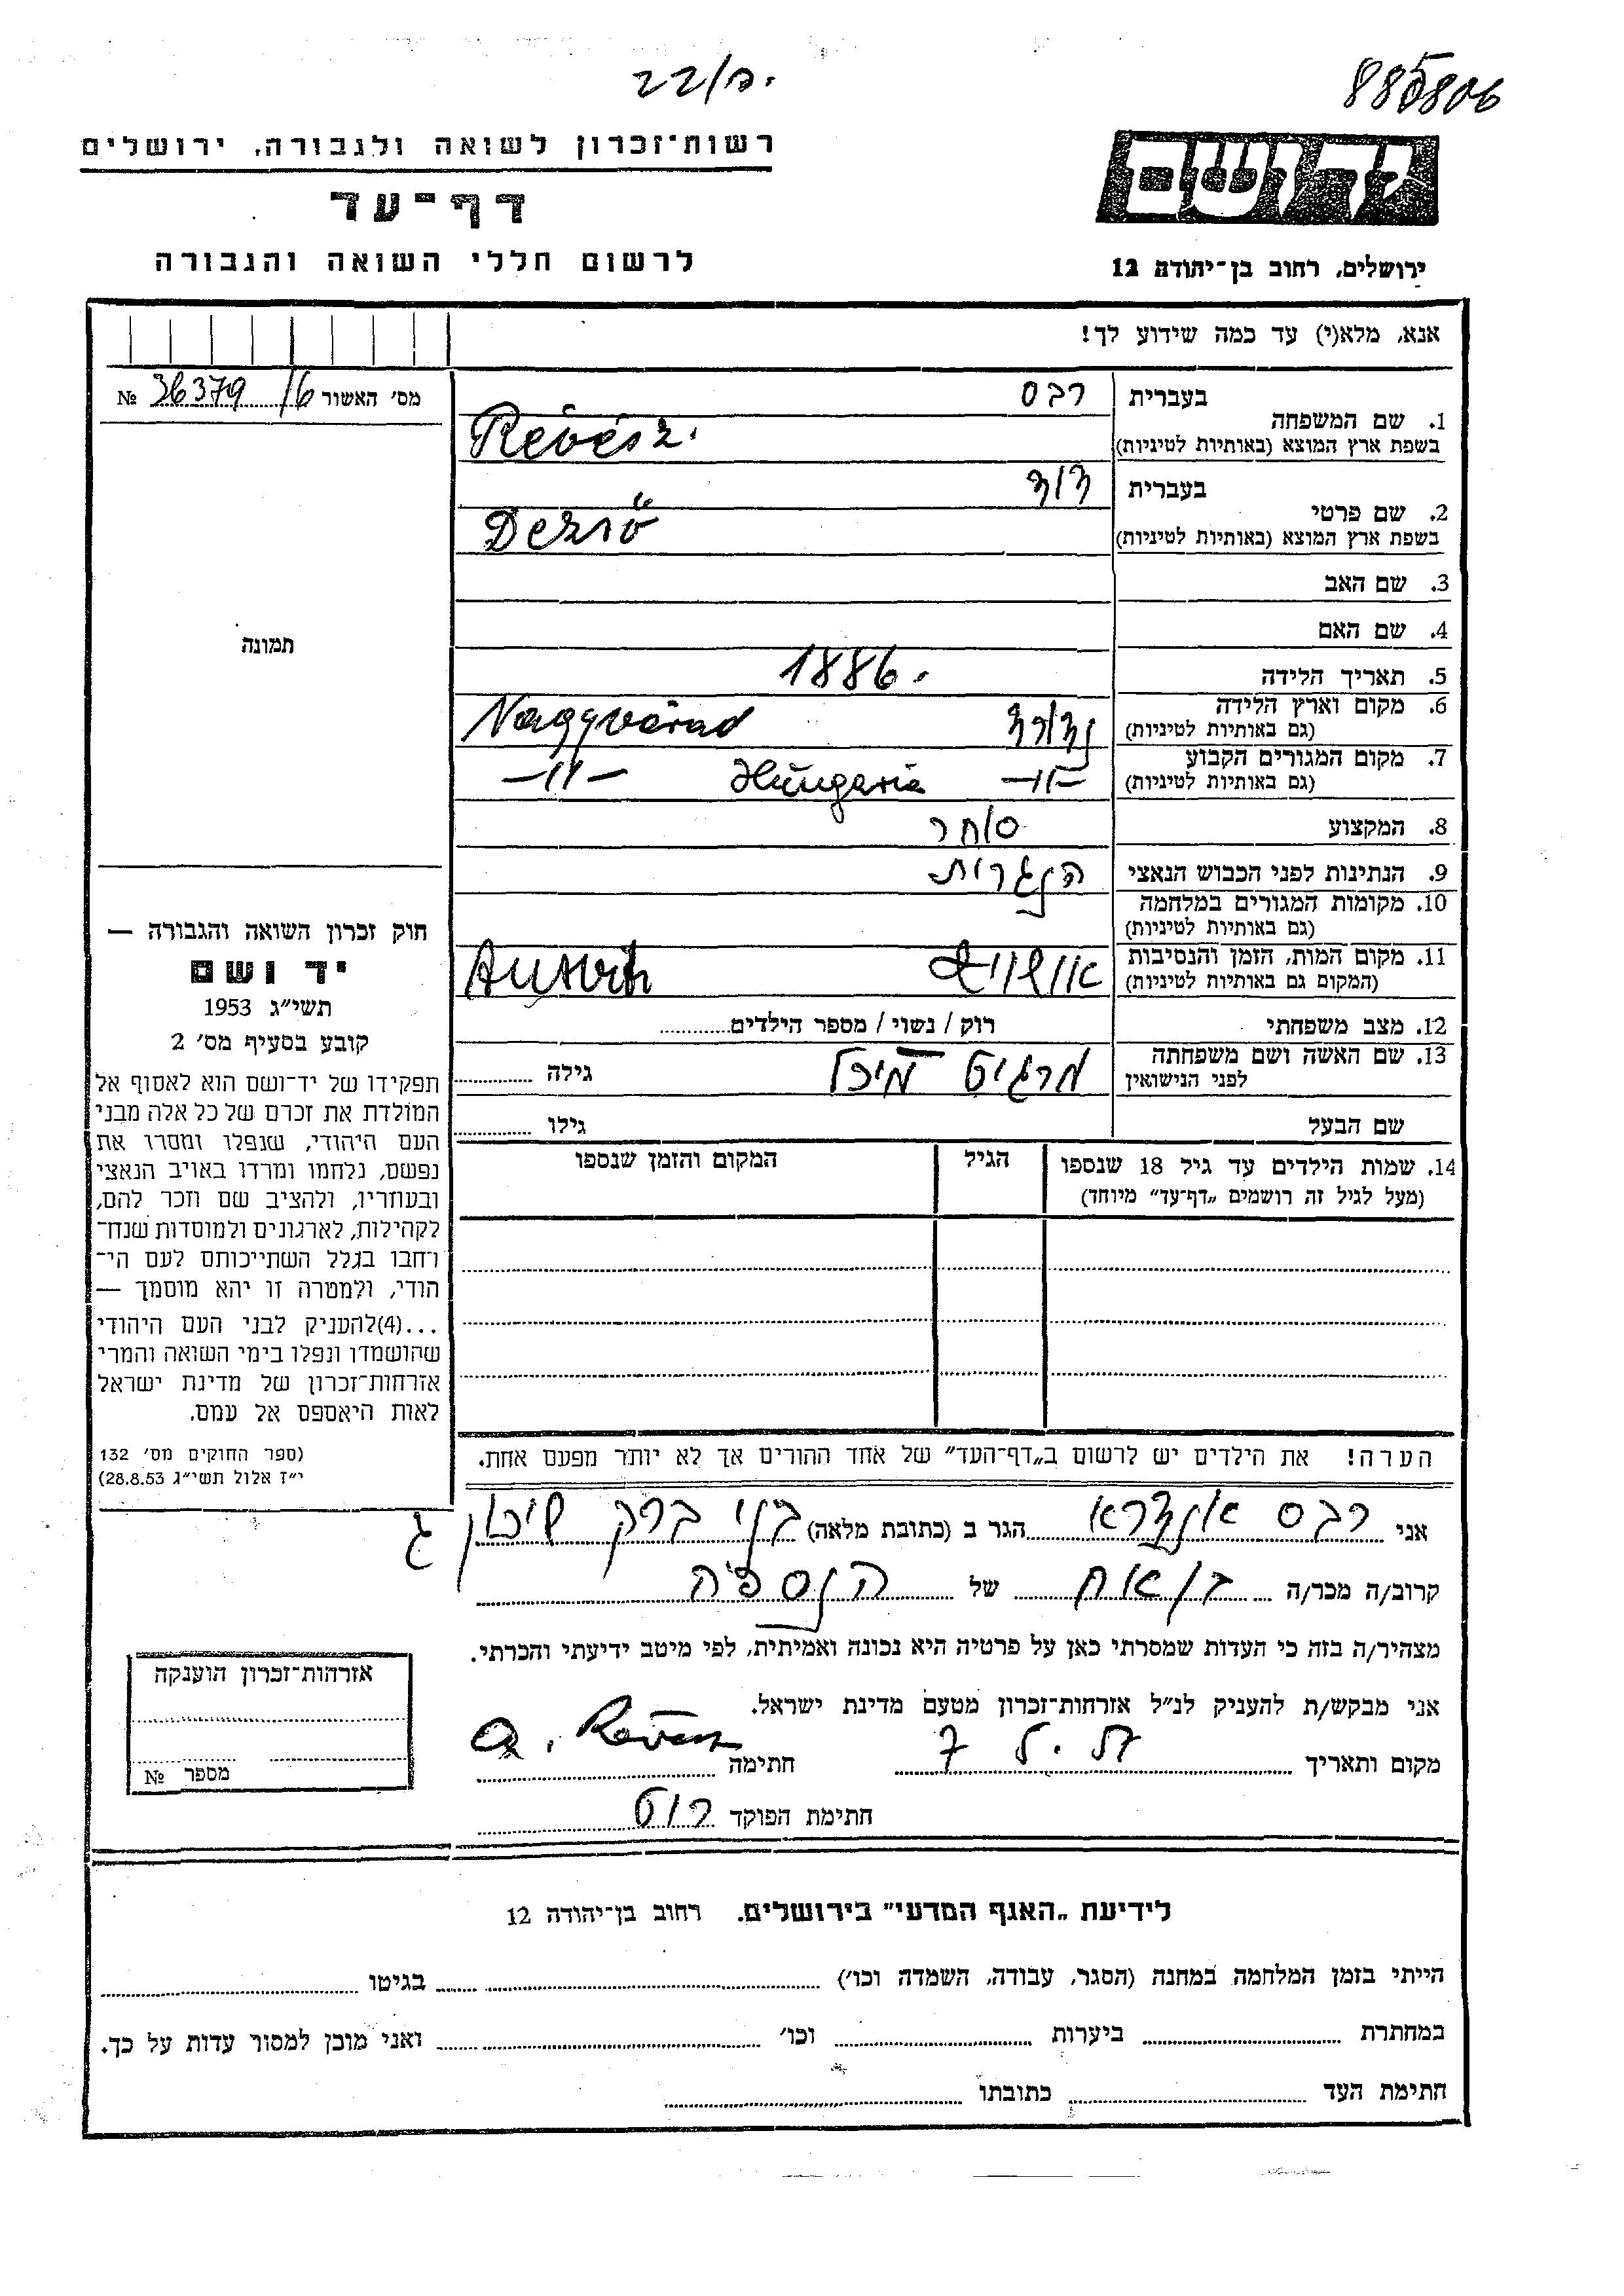 22/ה.
885806
רשות־זכרון לשואה ולגבורה, ירושלים
דף־עד
לרשום חללי השואה והגבורה
יד ושם
ירושלים, רחוב בן־יהודה 12
אנא, מלא(י) עד כמה שידוע לך!
מס׳ האשור 16/ 36379 №
תמונה
1. שם המשפחה
בעברית רבס
בשפת ארץ המוצא (באותיות לטיניות) Révész.
2. שם פרטי
בעברית דוד
בשפת ארץ המוצא (באותיות לטיניות) Dezső
3. שם האב
4. שם האם
5. תאריך הלידה 1886.
6. מקום וארץ הלידה
(גם באותיות לטיניות) Nagyvárad
7. מקום המגורים הקבוע
(גם באותיות לטיניות) —״— Hungaria —״—
8. המקצוע סוחר
9. הנתינות לפני הכבוש הנאצי הונגרית
10. מקומות המגורים במלחמה
(גם באותיות לטיניות)
11. מקום המות, הזמן והנסיבות
(המקום גם באותיות לטיניות) אוושוויץ
12. מצב משפחתי רוק / נשוי / מספר הילדים
13. שם האשה ושם משפחתה
לפני הנישואין מרגיט גילה
שם הבעל גילו
14. שמות הילדים עד גיל 18 שנספו
(מעל לגיל זה רושמים „דף־עד״ מיוחד)
הגיל
המקום והזמן שנספו
חוק זכרון השואה והגבורה —
יד ושם
תשי״ג 1953
קובע בסעיף מס׳ 2
תפקידו של יד־ושם הוא לאסוף אל
המולדת את זכרם של כל אלה מבני
העם היהודי, שנפלו ומסרו את
נפשם, נלחמו ומרדו באויב הנאצי
ובעוזריו, ולהציב שם וזכר להם,
לקהילות, לארגונים ולמוסדות שנח־
רחבו בגלל השתייכותם לעם הי־
הודי, ולמטרה זו יהא מוסמך —
...(4)להעניק לבני העם היהודי
שהושמדו ונפלו בימי השואה והמרי
אזרחות־זכרון של מדינת ישראל
לאות היאספם אל עמם.
(ספר החוקים מס׳ 132
י״ז אלול תשי״ג 28.8.53)
הערה! את הילדים יש לרשום ב„דף־העד״ של אחד ההורים אך לא יותר מפעם אחת.
אני רבס אנדרא הגר ב (כתובת מלאה) בני ברק שיכון ג
קרוב/ה מכר/ה בן אח של הנספה
מצהיר/ה בזה כי העדות שמסרתי כאן על פרטיה היא נכונה ואמיתית, לפי מיטב ידיעתי והכרתי.
אני מבקש/ת להעניק לנ״ל אזרחות־זכרון מטעם מדינת ישראל.
מקום ותאריך חתימה A. Révész
חתימת הפוקד
אזרחות־זכרון הוענקה
מספר №
לידיעת „האגף המדעי״ בירושלים. רחוב בן־יהודה 12
הייתי בזמן המלחמה במחנה (הסגר, עבודה, השמדה וכו׳) בגיטו
במחתרת ביערות וכו׳ ואני מוכן למסור עדות על כך.
חתימת העד כתובתו